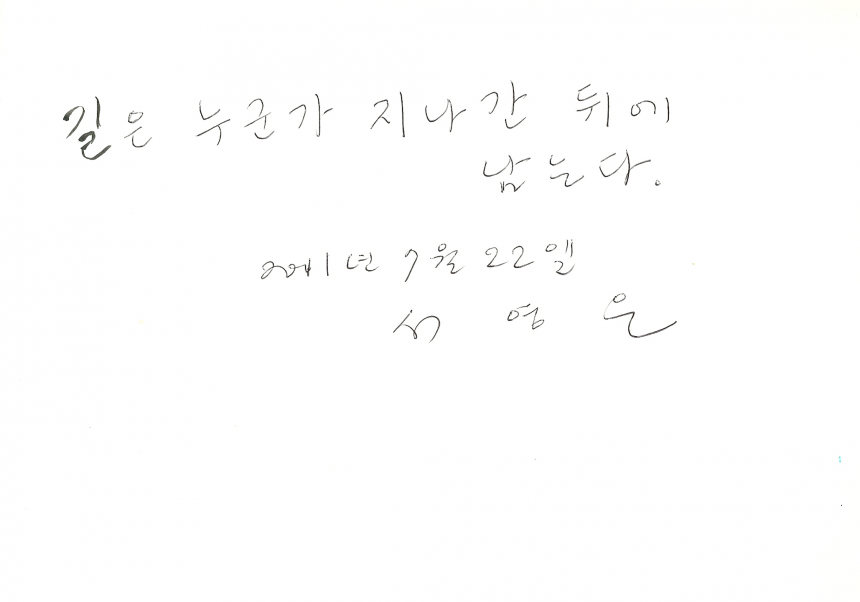 길은 누군가 지나간 뒤에
남는다.
2001년 7월 22일
서 영 은